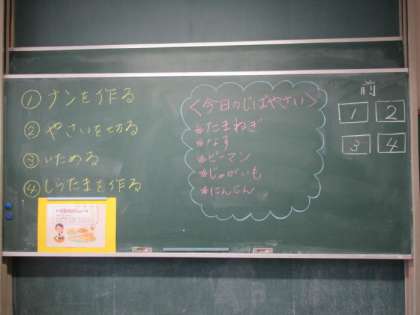 ① ナンを作る
② やさいを切る
③ いためる
④ しらたまを作る
＜今日のじばやさい＞
*たまねぎ
*なす
*ピーマン
*じゃがいも
*にんじん
前
1 2
3 4